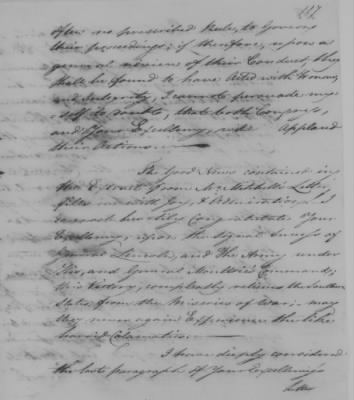 117
often no prescribed Rule, to Govern
their proceedings; if therefore, upon a
general review of their Conduct, they
shall be found to have Acted with Honour
and Integrity, I cannot persuade my
self to doubt, that both Congress,
and Your Excellency, will Applaud
their Actions
The Good News contained in
the Extract from Mr Mitchell's Letter
fills me with Joy, & Admiration, I
most heartily congratulate Your
Excellency, upon the signal Success of
General Lincoln, and the Army under
His, and General Moultrie's Command;
this Victory, compleatly relieves the Southern
States, from the Miseries of War; may
they never again Experience the like
horrid Calamities.
I have deeply considered
the last paragraph of Your Excellency's
Letter